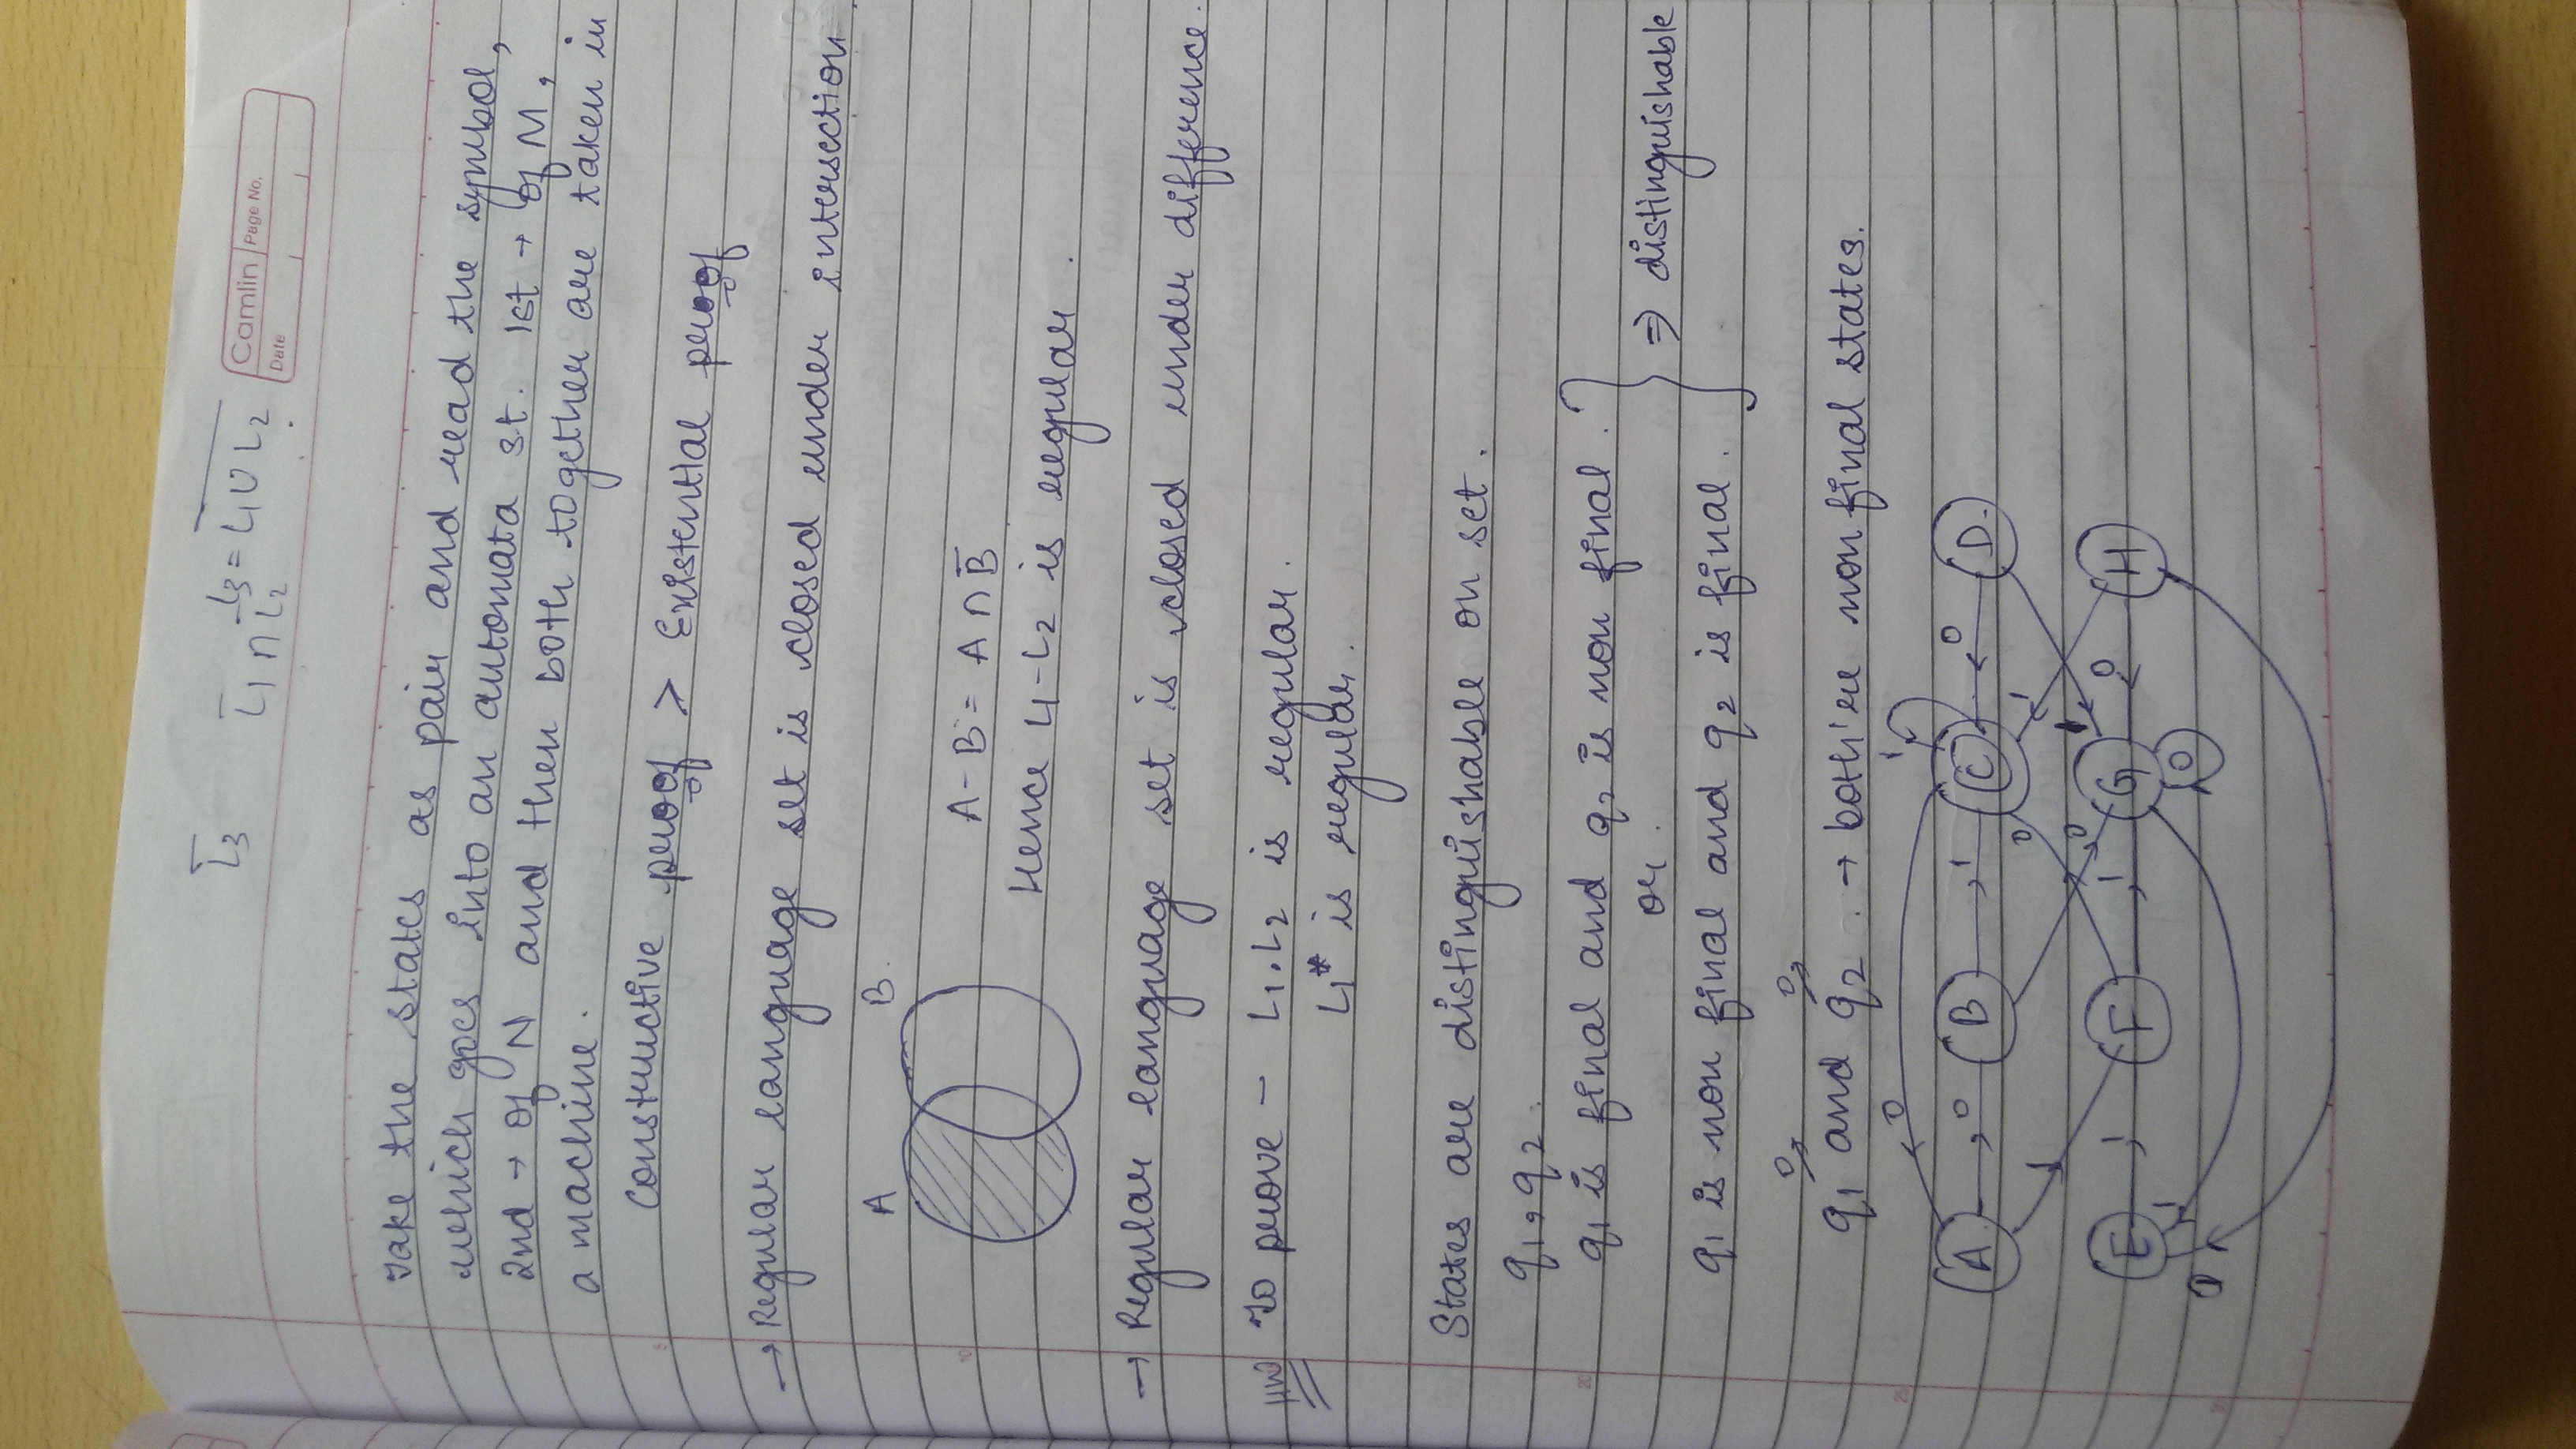 L̅3 L̅1 ∩ L̅2 L3 = \overline{L1 ∪ L2}
Camlin Page No.
Date
Take the states as pair and read the symbol,
which goes into an automata s.t. 1st → of M,
2nd → of N and then both together are taken in
a machine.
5
Constructive proof > Existential proof
→ Regular language set is closed under intersection.
A B.
10
A - B = A ∩ B̅
Hence L1 - L2 is regular.
→ Regular language set is closed under difference.
HW To prove - L1.L2 is regular.
L1* is regular.
States are distinguishable on set.
q1, q2.
20
q1 is final and q2 is non final.
or. ⇒ distinguishable
q1 is non final and q2 is final.
0 0
q1 and q2. → both're non final states.
25
0 1
A 0 B 1 C 0 D
1 0 0 1
E 1 F 1 G 0 H
1 0